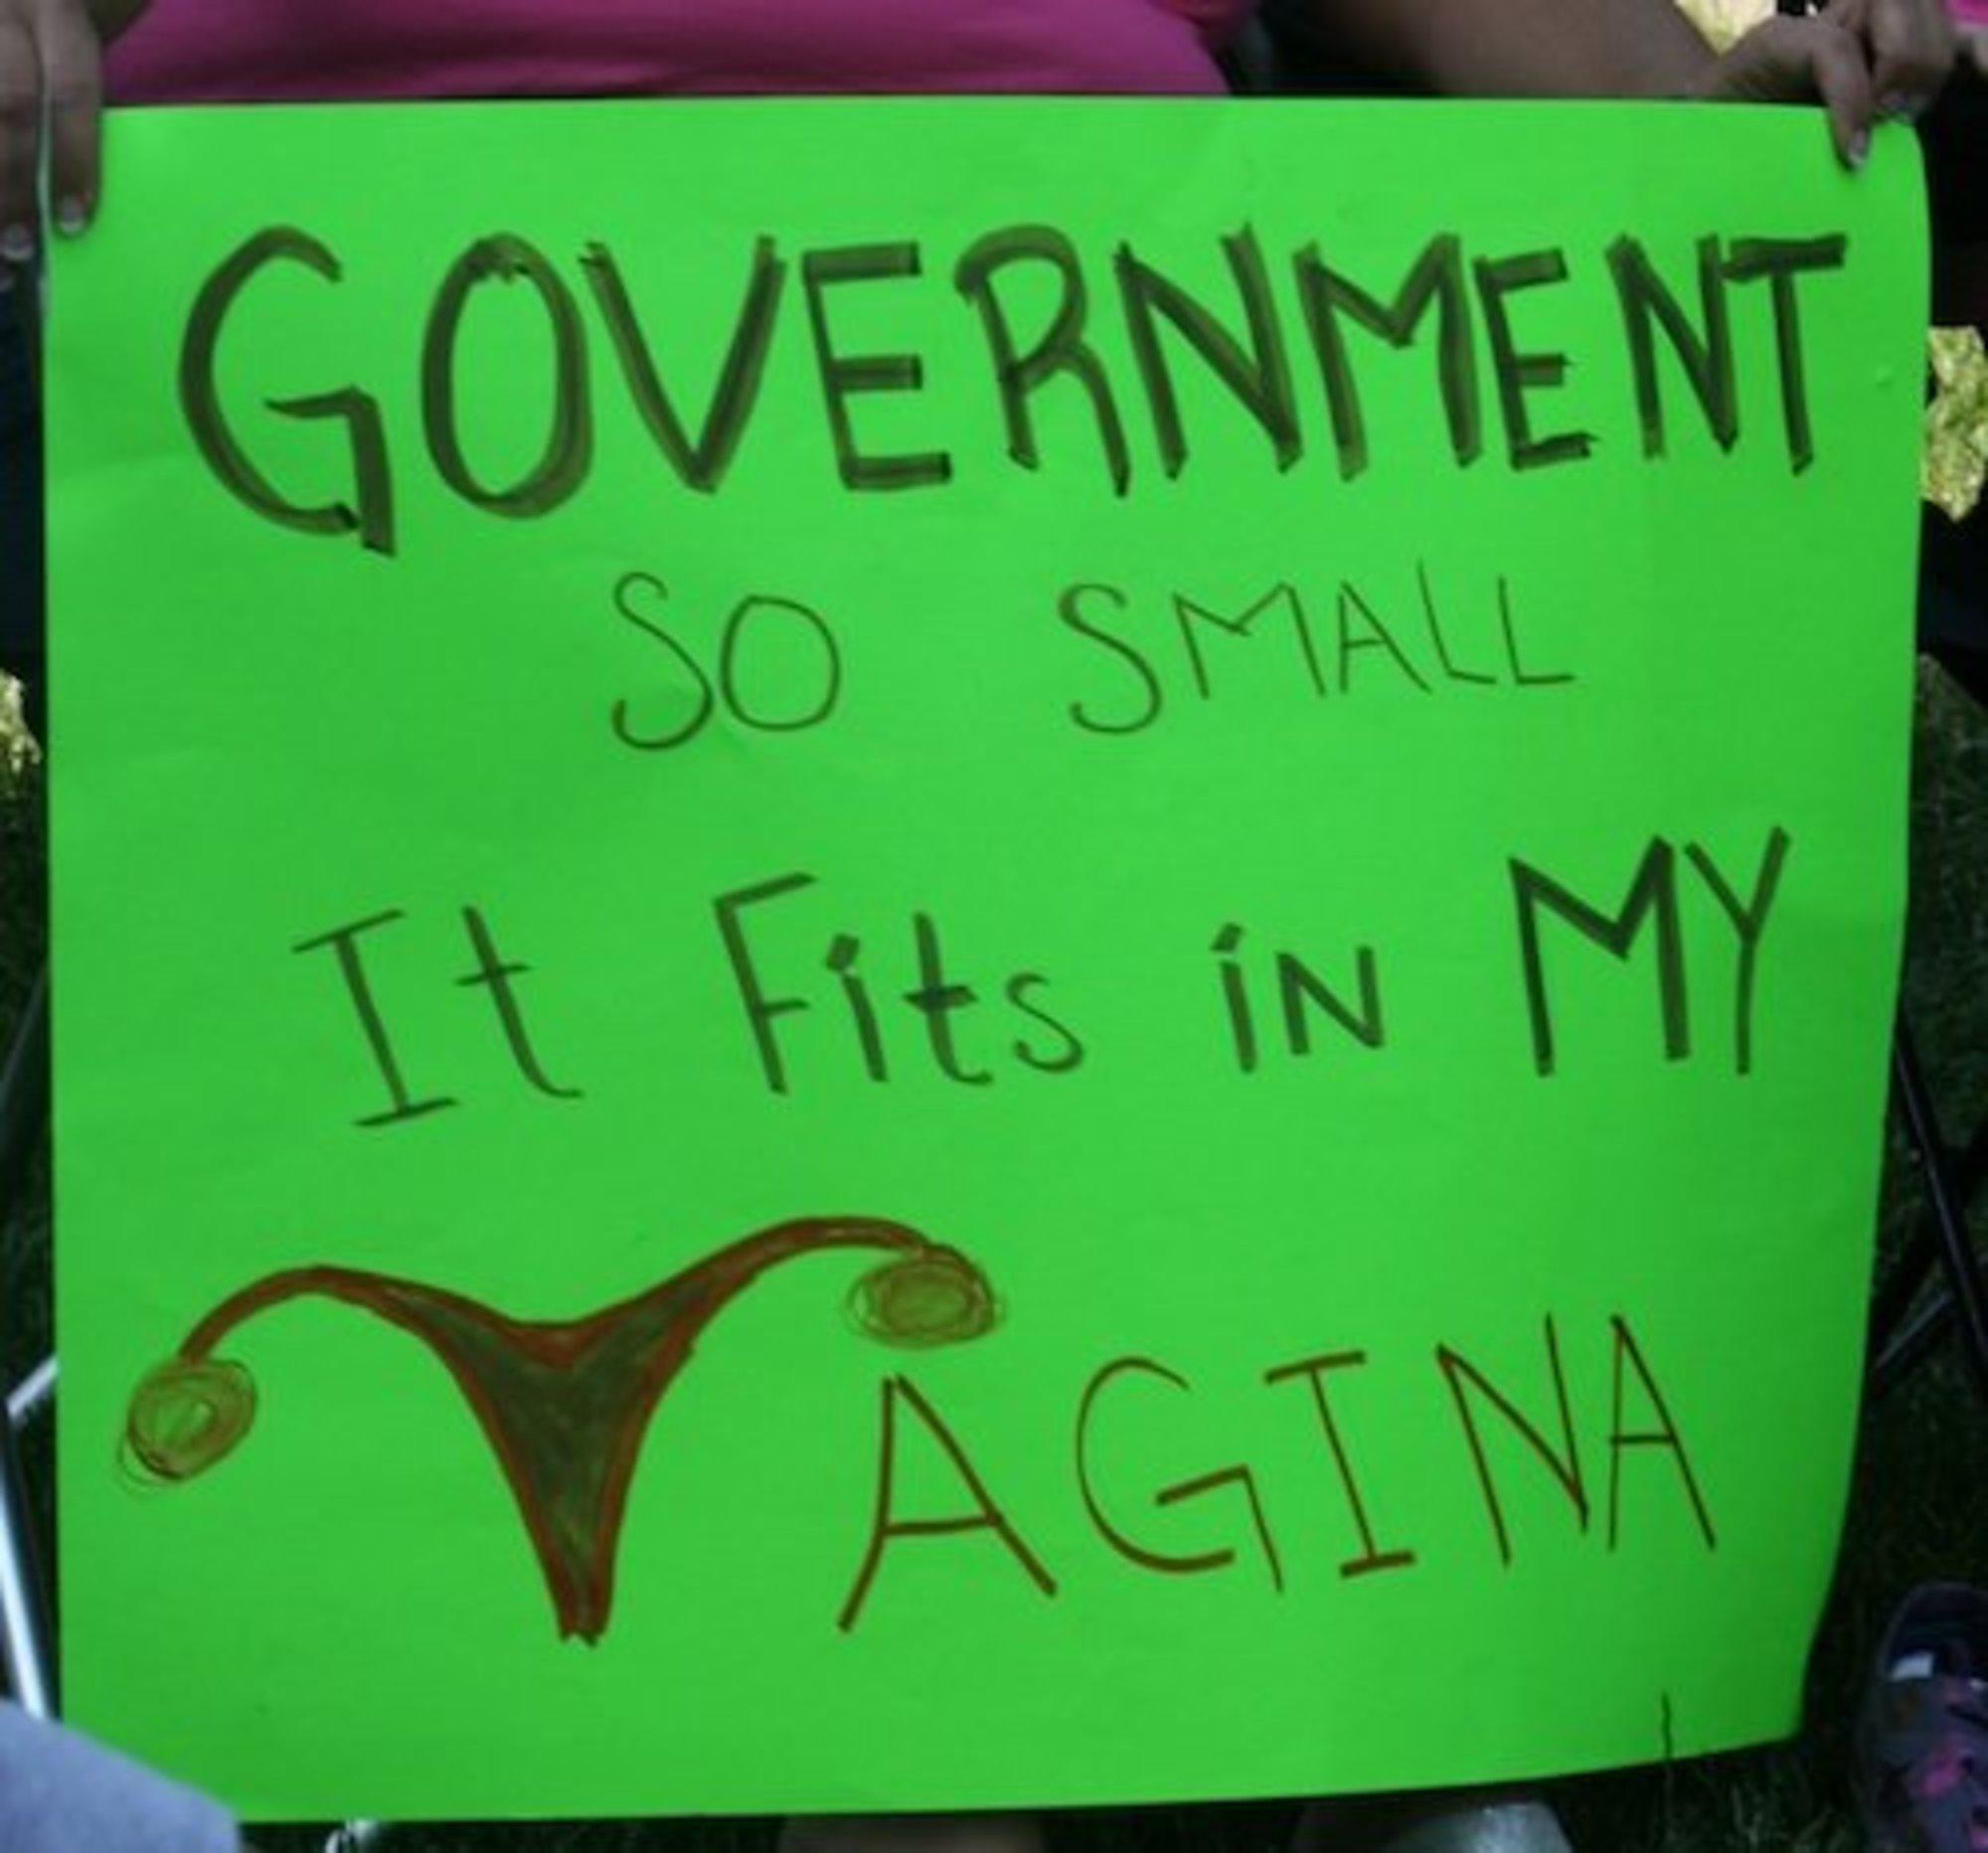 GOVERNMENT
SO SMALL
It Fits iN MY
VAGINA